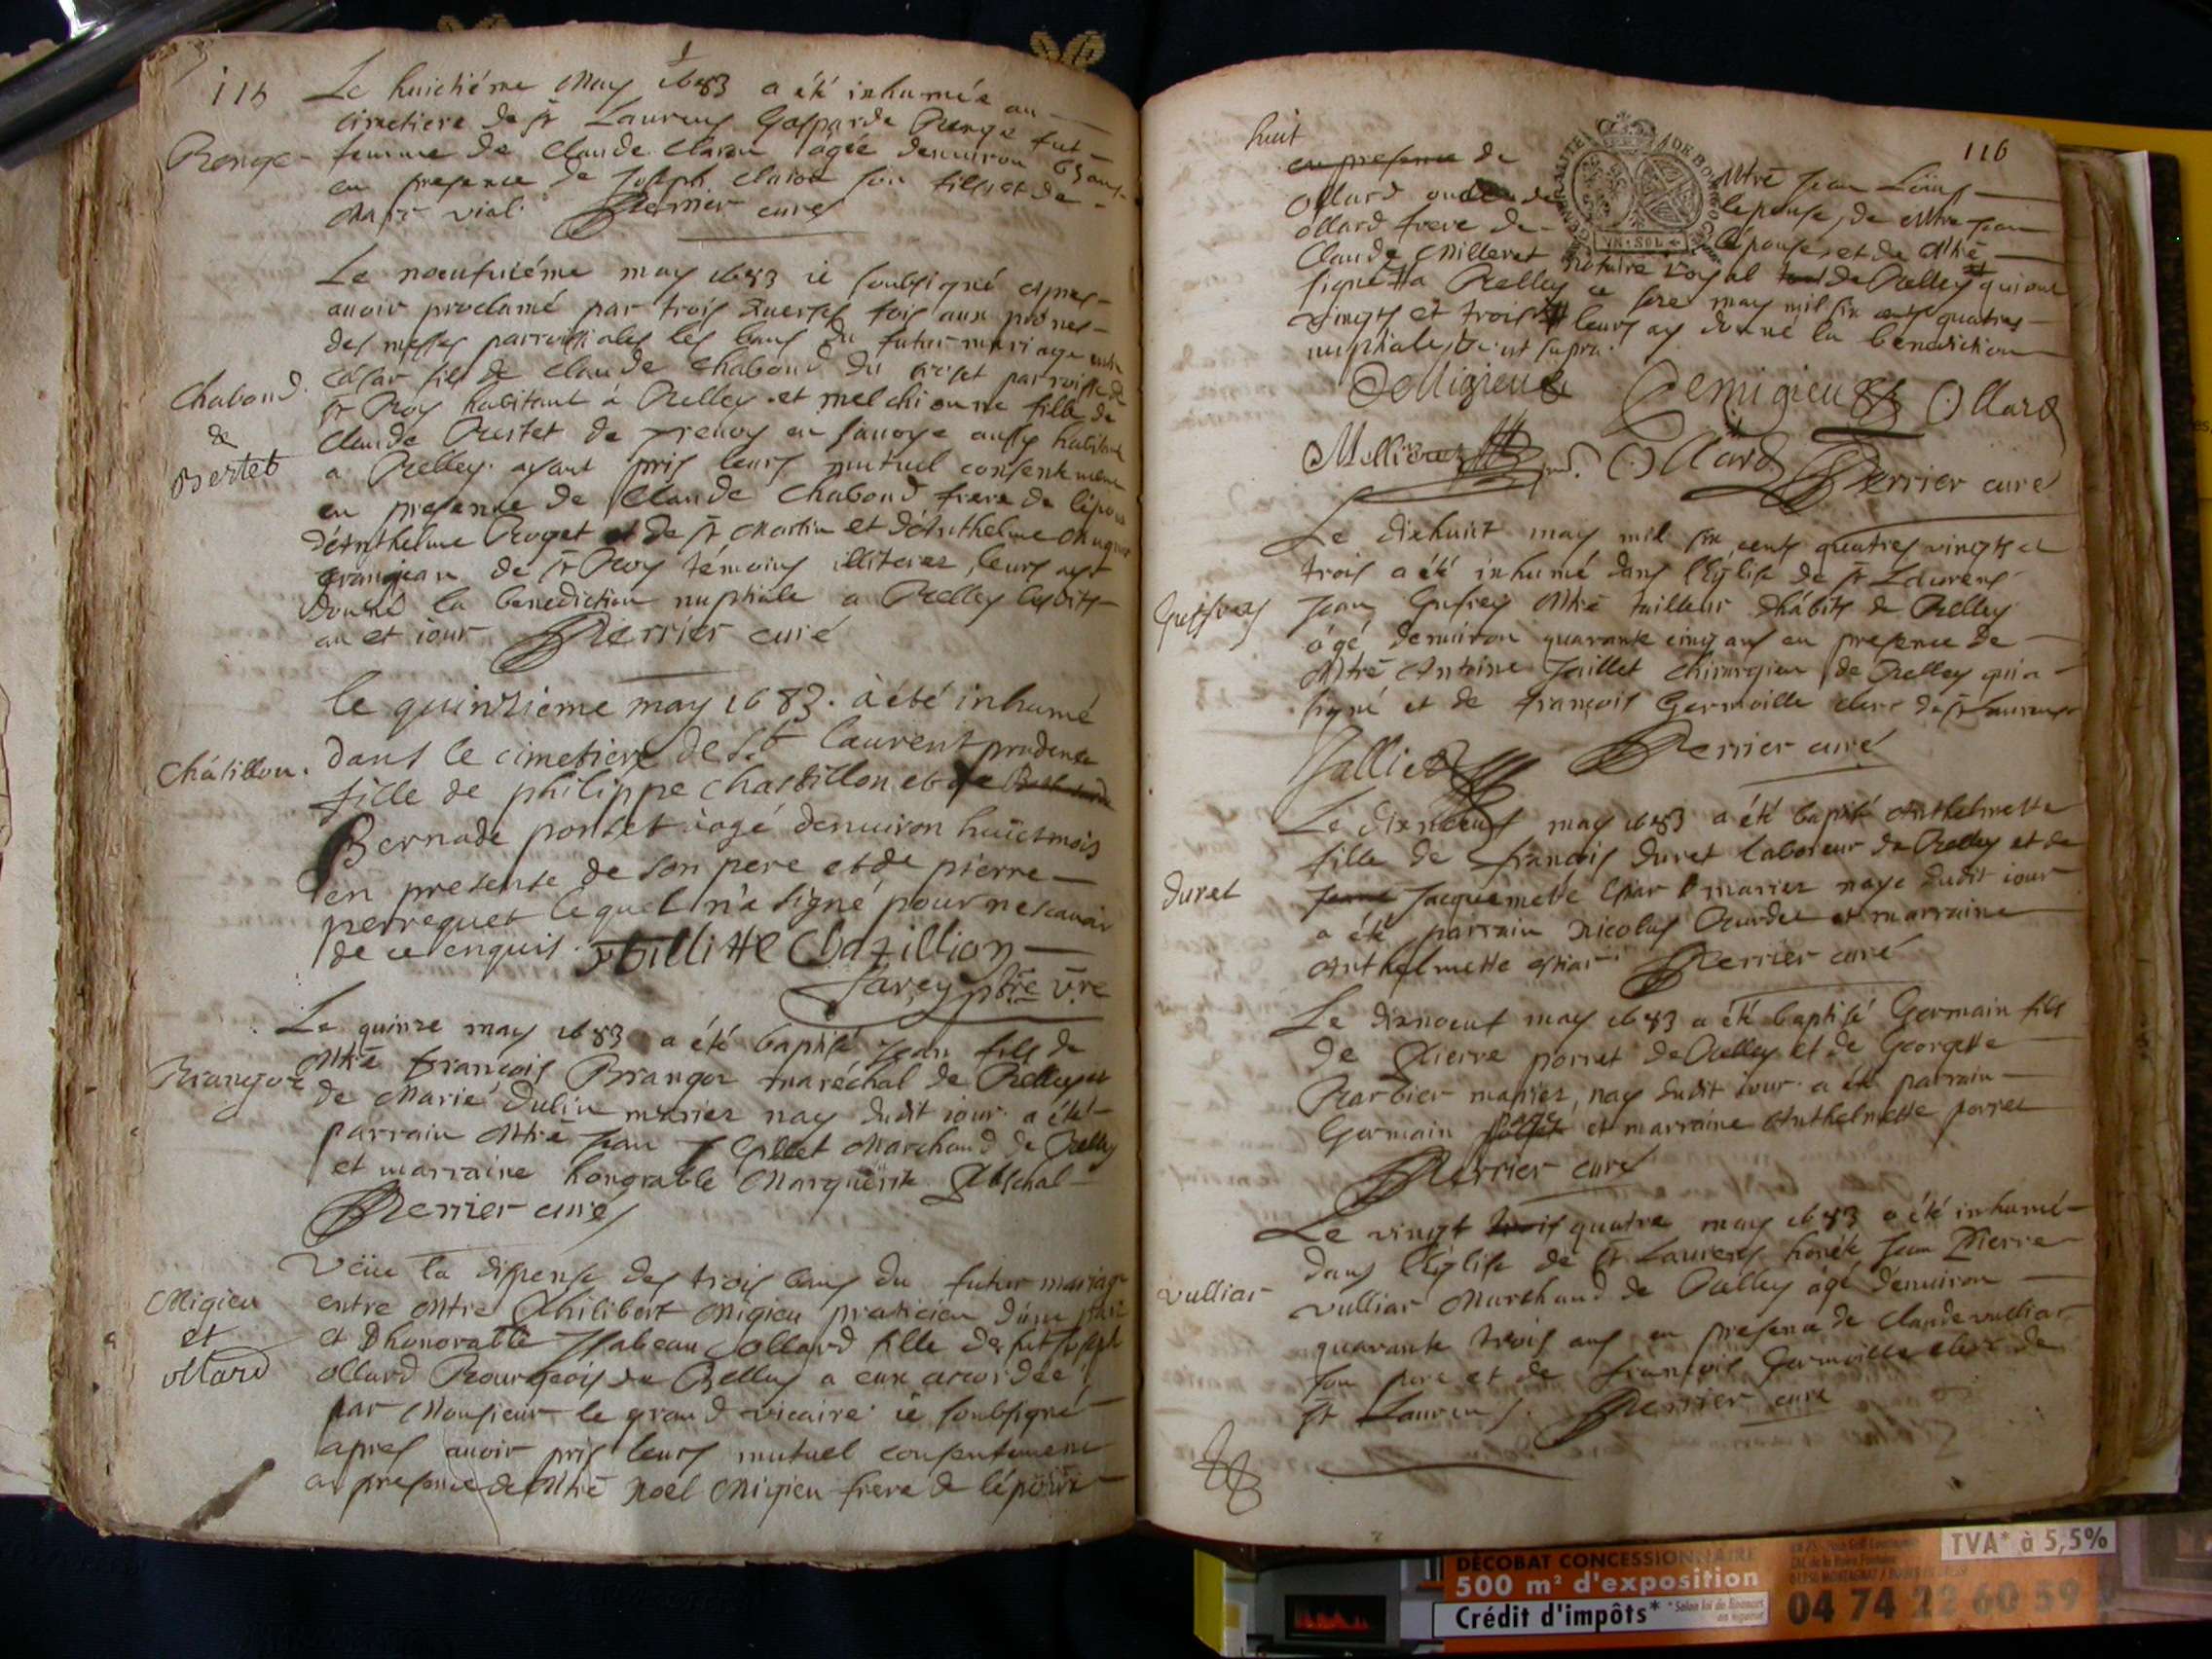 116
Le huictiéme May 1683 a été inhumée au
cimetiere de st Laurens Gasparde Ronge fut
Ronge
femme de Claude Claron âgée denuiron 65 ans
en presence de Joseph Claron son fils et de
Marc vial. Perrier curé
Le noeufuiéme may 1683 ie soubsigné apres
auoir proclamé par trois diuerses fois aux prônes
des messes parroissiales les bans du futur mariage entre
Cesar fils de Claude Chaboud du parroisse de
Chaboud
&
Bertet
st Roy habitant à Belley et melchionne fille de
Claude de en sauoye aussy habitant
a Belley. ayant pris leurs mutuel consentement
en presence de Claude Chaboud frere de lépoux
d'Anthelme Roget et de st Martin et d'Anthelme
de st Roy témoins illiterez, leurs ay
donné la benediction nuptiale a Belley lesdits
an et iour Perrier curé
le quinzieme may 1683. à été inhumé
dans le cimetiere de St laurent prudence
Châtillon.
fille de philippe chastillon et de
Bernade pontet âgé denuiron huict mois
en presense de son pere et de pierre
perreguet lequel n'a signé pour ne scauoir
de ce enquis. Chatillion
Favey ptre vre
Le quinze may 1683 a été baptisé Jean fils de
Mtre François Brangoz maréchal de Belley et
Brangoz
de Marie dulin mariez nay dudit iour. a été
parrain Mtre Jean Gillet Marchand de Belley
et marraine honorable Marguerite
Perrier curé
Veüe la dispense des trois bans du futur mariage
Migieu
et
ollard
entre Mtre Philibert Migieu praticien d'une part
et d'honorable Isabeau Ollard fille de fut Joseph
Ollard Bourgeois de Belley a eux accordée
par Monsieur le grand vicaire ie soubsigné
apres auoir pris leurs mutuel consentement
en presence de Mtre Noël Migieu frere de lépoux
116
huit
en presence de Mtre Jean Loüis
Ollard oncle de lépouse, de Mtre Jean
Ollard frere de lépouse, et de Mtre
GENERALITE DE BOURGOGNE
UN · SOL
Claude Milleret notaire royal de Belley qui ont
signé a Belley ce may mil six cents quatres
vingts et trois leurs ay donné la benediction
nuptiale ut supra.
DeMigieu Demigieu Ollard
Milleret Ollard Perrier curé
Le dixhuict may mil six cents quatres vingts et
trois a été inhumé dans l'Eglise de st Laurens
Jean Mtre tailleur d'hábits de Belley
âgé denuiron quarante cinq ans en presence de
Mtre Antoine Jaillet chirurgien de Belley qui a
signé et de François Germoille clerc de st Laurens
Jalliet Perrier curé
Le dixnoeuf may 1683 a été baptisé Anthelmette
fille de françois duret laboreur de Belley et de
duret
Jacquemette mariez naye dudit iour
a été parrain Nicolas et marraine
Anthelmette Perrier curé
Le dixnoeuf may 1683 a été baptisé Germain fils
de Pierre porret de Belley et de Georgette
Barbier mariez, nay dudit iour. a été parrain
Germain et marraine Anthelmette porret
Perrier curé
Le vingt trois quatre may 1683 a été inhumé
dans l'Eglise de st Laurens honéte Jean Pierre
vulliar
vulliar Marchand de Belley âgé d'enuiron
quarante trois ans en presence de Claude vulliar
son pere et de françois Germoille clerc de
st Laurens. Perrier curé
DÉCOBAT CONCESSIONNAIRE
500 m² d'exposition
Crédit d'impôts*
TVA* à 5,5%
04 74 22 60 59